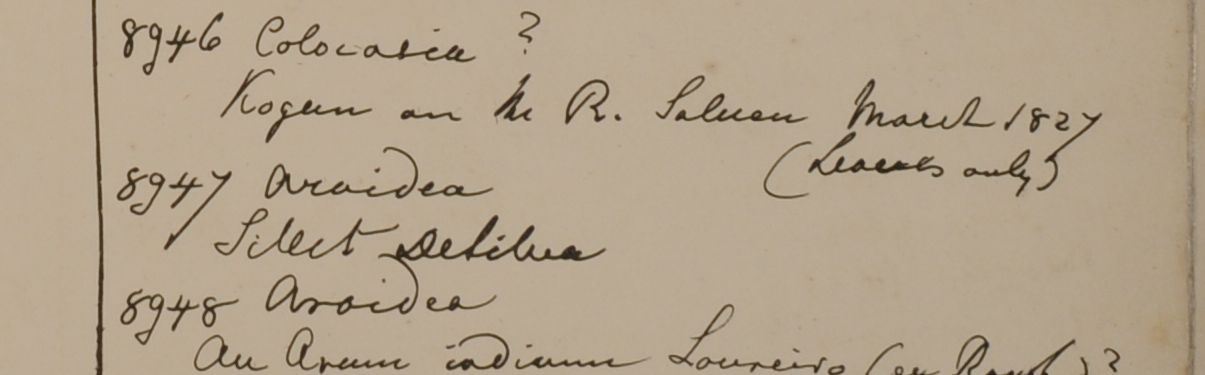 8946 Colocasia ?
Kogun on the R. Saluen March 1827
(Leaves only)
8947 Aroidea
Sillet DeSilva
8948 Aroidea
An Arum indicum Loureiro (en Roxb)?